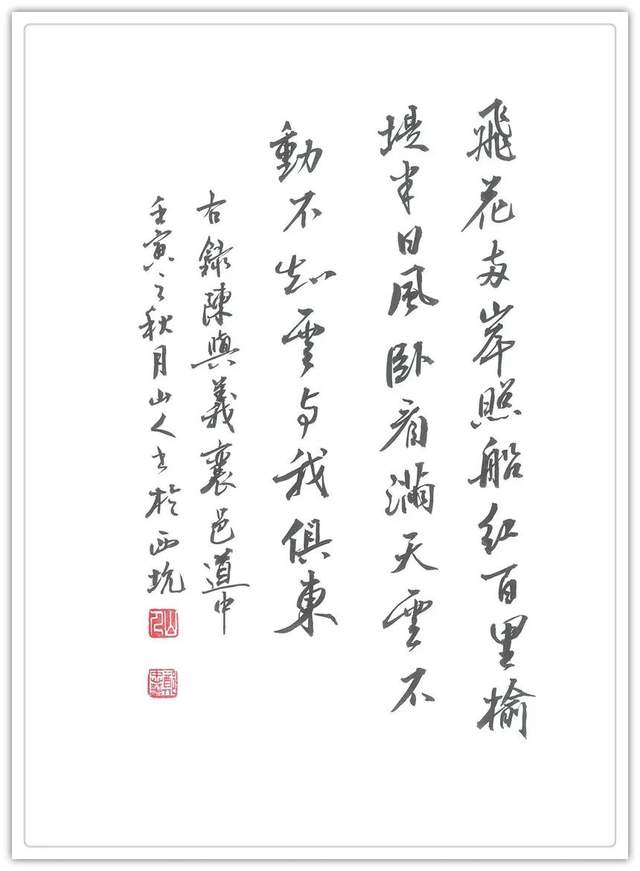 飛花兩岸照船紅百里榆
堤半日風卧看滿天雲不
動不知雲与我俱東
右錄陳與義襄邑道中
壬寅之秋月山人書於西坑
山人